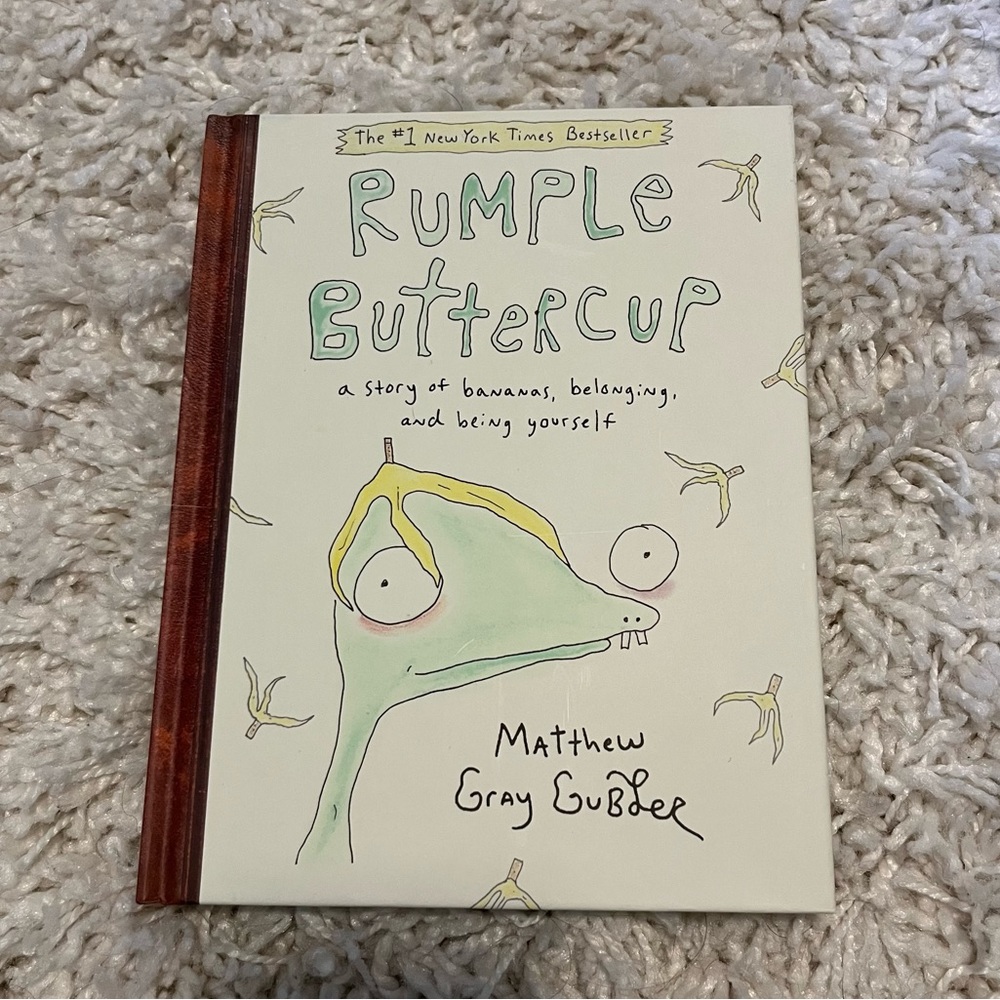 The #1 New York Times Bestseller
RUMPLE
ButteRCuP
a story of bananas, belonging,
and being yourself
Matthew
Gray Gubler